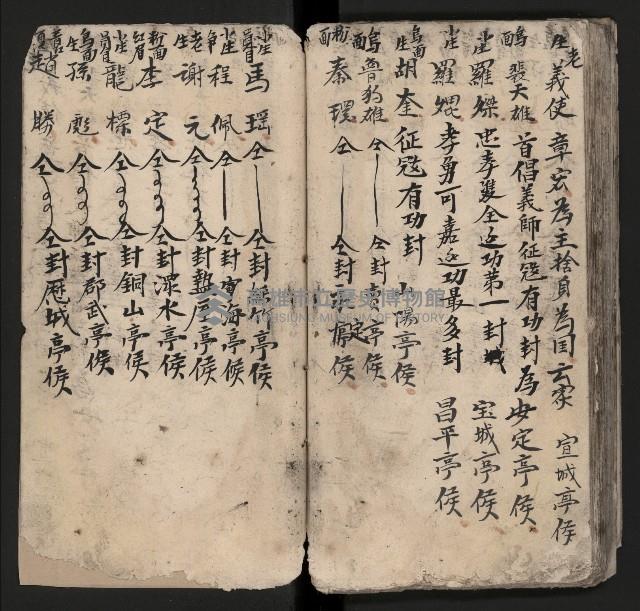 老生 義使 章宏為主捨身為国云家 宣城亭侯
烏面 裴天雄 首倡義師征寇有功封為安定亭侯
坐 羅燦 忠孝雙全 功第一封 宝城亭侯
坐 羅焜 孝勇可嘉 功最多封 昌平亭侯
烏面生 胡奎 征寇有功封 山陽亭侯
烏面 魯豹雄 仝 仝封 亭侯
粉面 秦環 仝 仝封 定 亭侯
坐 馬瑶 仝 仝封 竹亭侯
坐 程佩 仝 仝封 亭候
老生 謝元 仝 仝封 亭侯
粉面紅眉 李定 仝 仝封溧水亭侯
坐 龍標 仝 仝封銅山亭侯
烏面生 孫彪 仝 仝封郡武亭侯
趙勝 仝 仝封歷城亭侯
高雄市立歷史博物館
KAOHSIUNG MUSEUM OF HISTORY